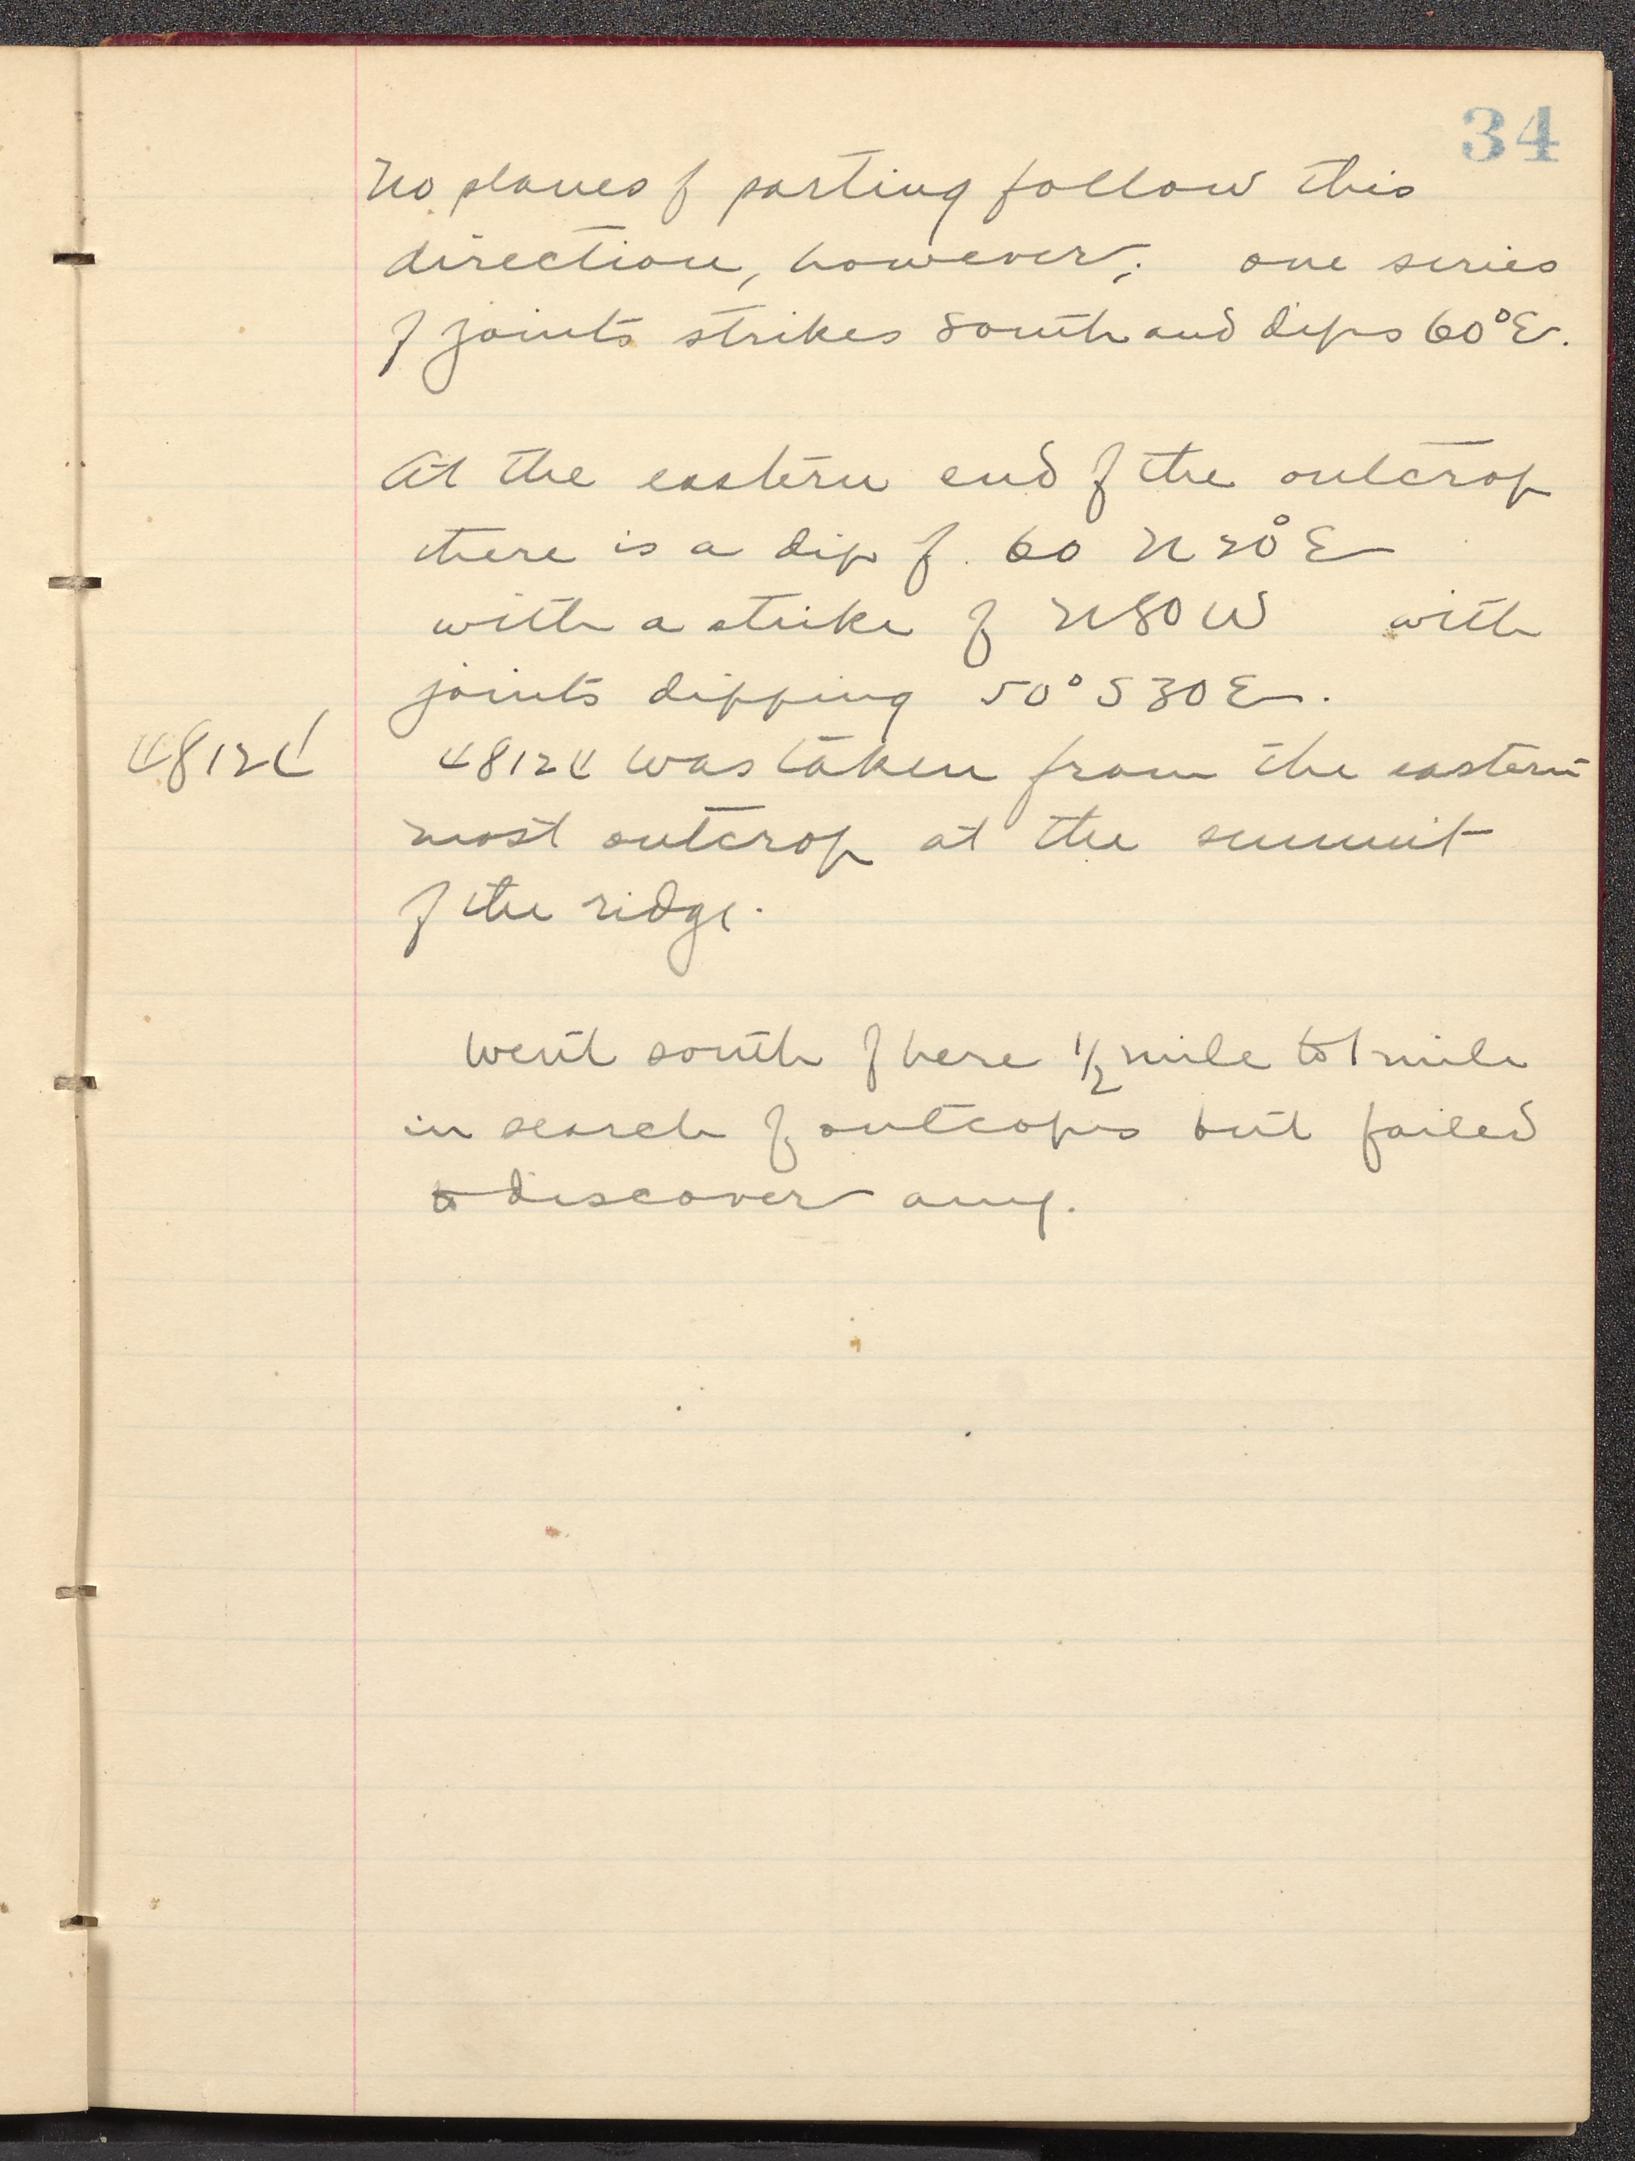 34
No planes of parting follow this
direction, however; one series
of joints strikes South and dips 60°E.
At the eastern end of the outcrop
there is a dip of 60 N 20° E
with a strike of N80W with
joints dipping 50° S30E.
48124
48124 was taken from the eastern
most outcrop at the summit
of the ridge.
Went south of here 1/2 mile to 1 mile
in search of outcops but failed
to discover any.